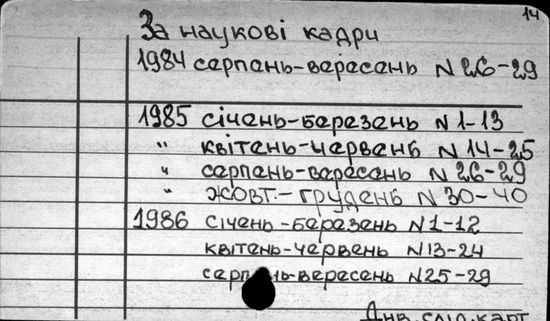 14
За наукові кадри
1984 серпень-вересень N 26-29
1985 січень-березень N 1-13
" квітень-червень N 14-25
" серпень-вересень N 26-29
" жовт.-грудень N 30-40
1986 січень-березень N 1-12
квітень-червень N 13-24
серпень-вересень N 25-29
Див. слід. карт